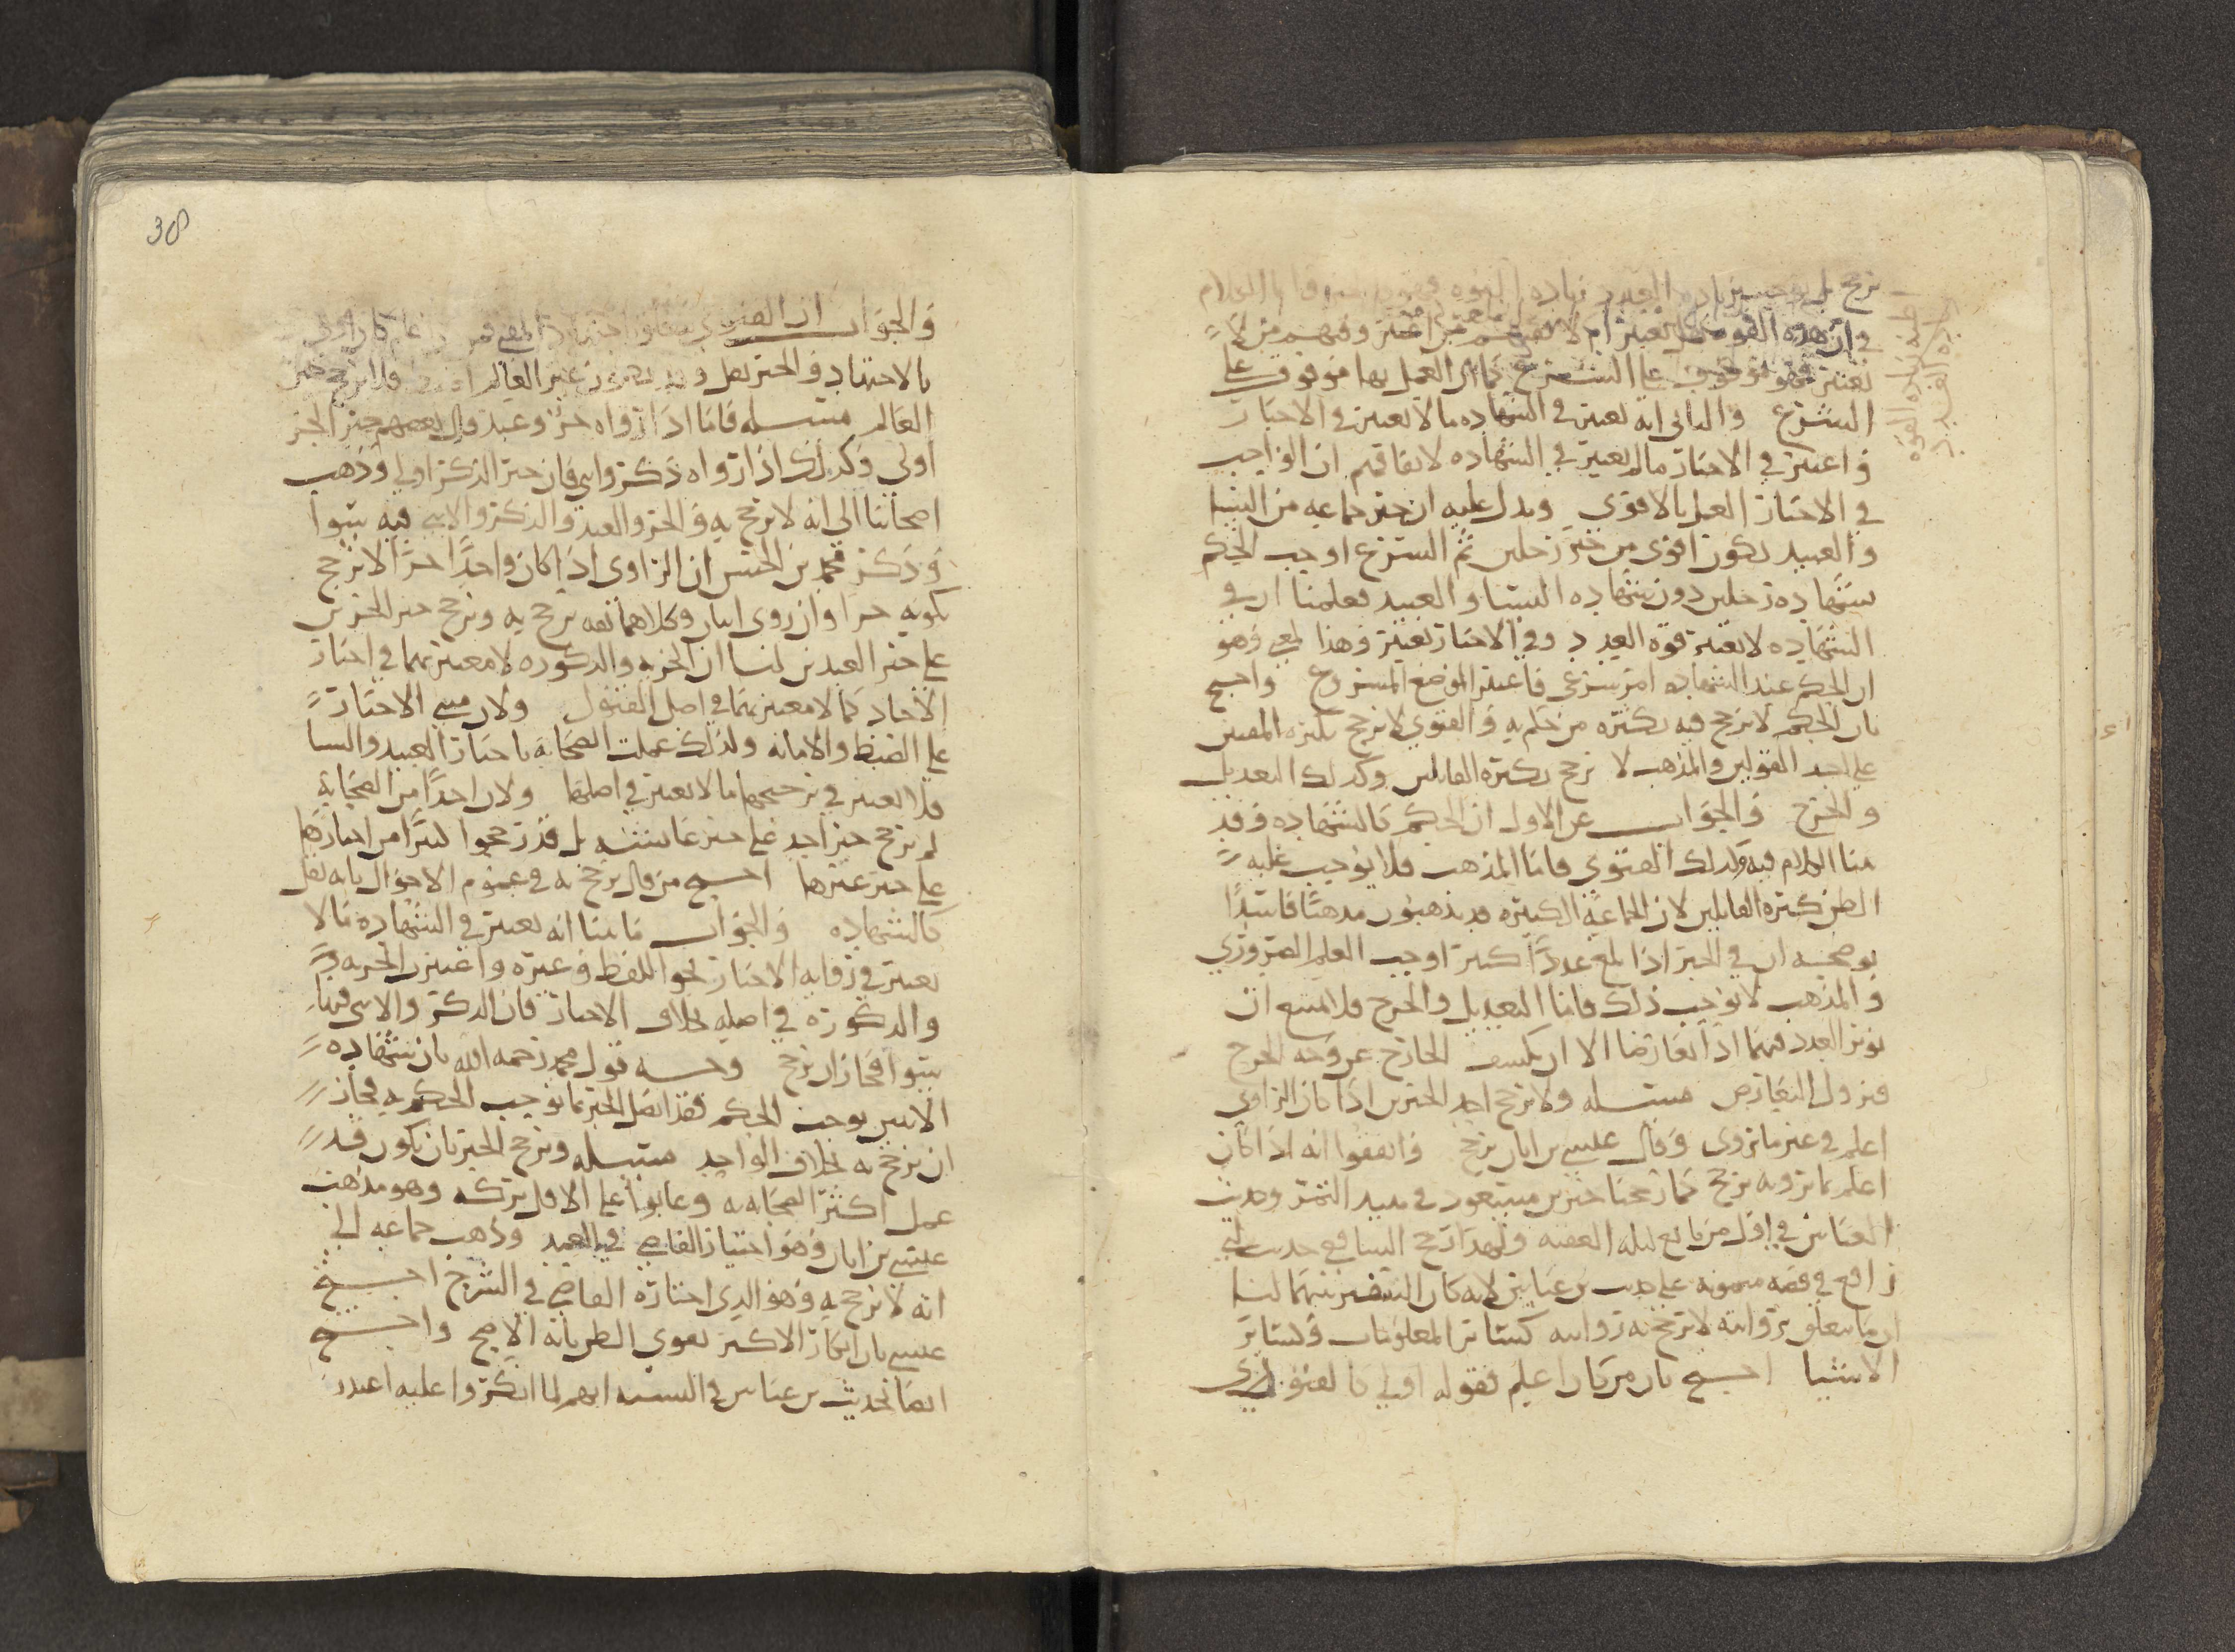 ترجح بل توجب زيادة العدد زيادة القوه
في ان هذه القوه هل تعتبر ام لا فمنهم من اعتبر ومنهم من لم
تعتبر فهو موقوف على الشرع كما ان العمل بها موقوف على
الشرع والثاني انه يعتبر في الشهاده ما لا يعتبر في الاخبار
واعتبر في الاخبار ما لم يعتبر في الشهاده لاتفاقهم ان الواجب
في الاخبار العمل بالاقوى ويدل عليه ان خبر جماعه من النسا
والعبيد يكون اقوى من خبر رجلين ثم الشرع اوجب الحكم
بشهاده رجلين دون شهاده النسا والعبيد فعلمنا ان في
الشهاده لا يعتبر قوه العدد وفي الاخبار تعتبر وهذا لمعنى وهو
ان الحكم عند الشهاده امر شرعي فاعتبر الموضع المشروع واحتج
بان الحكم لا يرجح فيه بكثره من حكم به والفتوى لا ترجح بكثره المفتين
على احد القولين والمذهب لا يرجح بكثره القايلين وكذلك التعديل
والجرح والجواب عن الاول ان الحكم كالشهاده وقد
بينا الكلام فيه وكذلك الفتوى فاما المذهب فلا يوجب غلبه
الظن كثره القايلين لان الجماعه الكثيره قد يذهبون مذهبًا فاسدًا
يوضحه ان في الخبر اذا بلغ عددًا كثيرا اوجب العلم الضروري
والمذهب لا يوجب ذلك فاما التعديل والجرح فلا يمتنع ان
يوثر العدد فيهما اذا تعارضا الا ان يكشف الجارح عن وجه الجرح
فيزول التعارض مسئله ولا ترجح احد الخبرين اذا كان الراوي
اعلم في غير ما يروى وقال عيسى بن ابان يرجح واتفقوا انه اذا كان
اعلم بما يرويه يرجح كما رجحنا خبر بن مسعود في نبيذ التمر وحديث
العباس في اول من بايع ليله العقبه ولهذا رجح الشافعي حديث ابي
رافع في قصه ميمونه على حديث بن عباس لانه كان السفير بينهما لنا
ان ما يتعلق بروايته لا يرجح به روايته كسائر المعلومات وكسائر
الاشيا احتج بان من كان اعلم فقوله اولى كالفتوى
زيادة العدد
والجواب ان الفتوى يتعلق باجتهاد المفتي فمن
بالاجتهاد والخبر نقل وقد يكون غير العالم فلا يرجح خبر
العالم مسئله فاما اذا رواه حر وعبد قال بعضهم خبر الحر
اولى وكذلك اذا رواه ذكر وانثى فان خبر الذكر اولى وذهب
اصحابنا الى انه لا يرجح به والحر والعبد والذكر والانثى فيه سوا
وذكر محمد بن الحسن ان الراوي اذا كان واحدًا حرًا لا يرجح
بكونه حرا وان روى اثنان وكلاهما ثقه يرجح به ويرجح خبر الحرين
على خبر العبدين لنا ان الحريه والذكوره لا معتبر بهما في اخبار
الاحاد كما لا معتبر بهما في اصل القبول ولان مبنى الاخبار
على الضبط والامانه ولذلك عملت الصحابه باخبار العبيد والنسا
فلا يعتبر في ترجيحها ما لا يعتبر في اصلها ولان احدًا من الصحابه
لم يرجح خبر احد على خبر عائشه بل قد رجحوا كثيرًا من اخبارها
على خبر غيرها احتج من قال يرجح به في عموم الاحوال بانه نقل
كالشهاده والجواب ما بينا انه يعتبر في الشهاده ما لا
يعتبر في روايه الاخبار نحو اللفظ وغيره واعتبر الحريه
والذكوره في اصله بخلاف الاخبار فان الذكر والانثى فيها
سوا فجاز ان يرجح وجه قول محمد رحمه الله بان شهاده
الاثنين يوجب الحكم فقد نقل الخبر بما يوجب الحكم به فجاز
ان يرجح به بخلاف الواحد مسئله ويرجح الخبر بان يكون قد
عمل اكثر الصحابه به وعابوا على الاقل بتركه وهو مذهب
عيسى بن ابان وهو اختيار القاضي في العمد وذهب جماعه الى
انه لا يرجح به وهو الذي اختاره القاضي في الشرح احتج
عيسى بان انكار الاكثر يقوي الظن بانه الاصح واحتج
ايضا بحديث بن عباس في النسيه انهم لما انكروا عليه
38